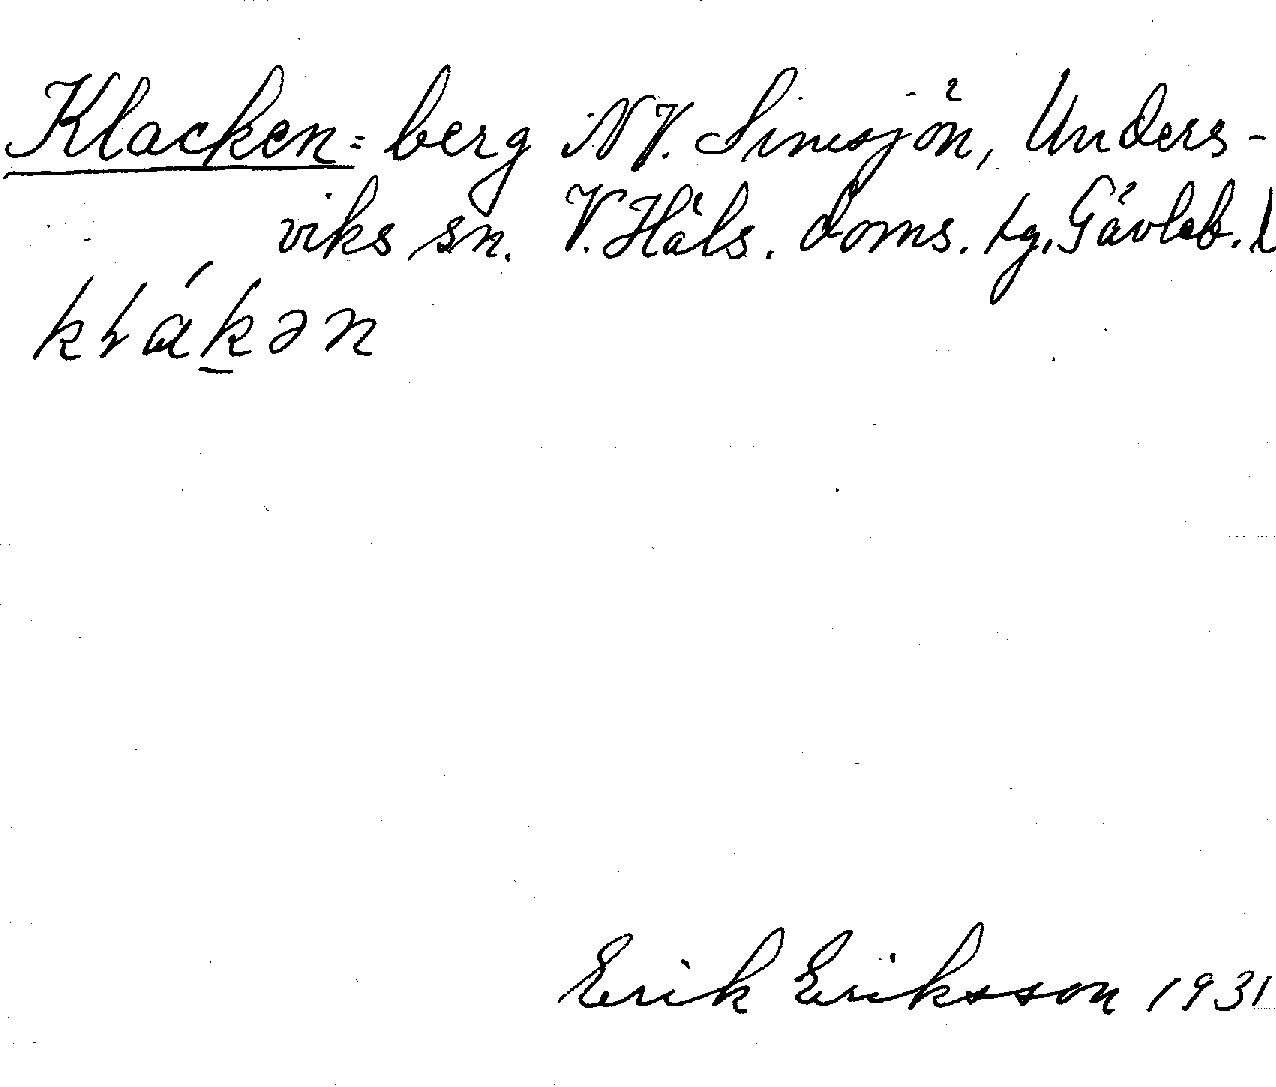 Klacken = berg NV. Simsjön, Unders-
viks sn. V. Häls. doms. tg. Gävleb. l
kɫákən
Erik Eriksson 1931